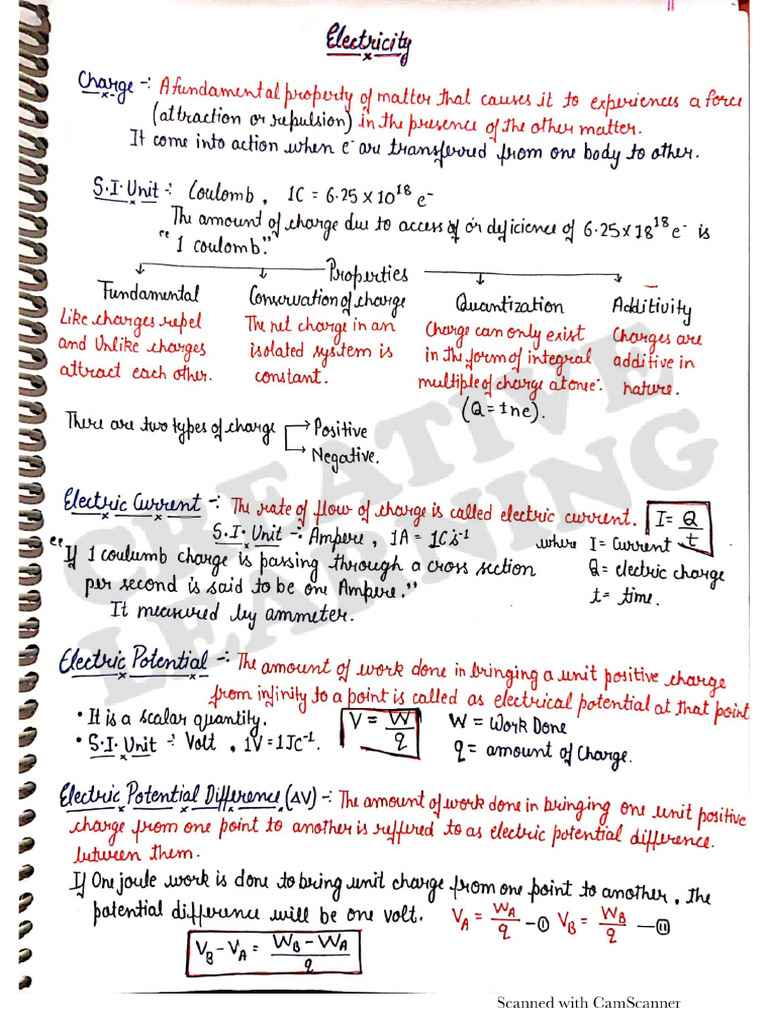 Electricity
Charge -: A fundamental property of matter that causes it to experiences a force
(attraction or repulsion) in the presence of the other matter.
It come into action when e⁻ are transferred from one body to other.
S.I. Unit -: Coulomb, 1C = 6.25 x 10¹⁸ e⁻
The amount of charge due to access of or deficience of 6.25 x 18¹⁸ e⁻ is
"1 coulomb."
Properties
Fundamental
Like charges repel
and Unlike charges
attract each other.
Conservation of charge
The net charge in an
isolated system is
constant.
Quantization
Charge can only exist
in the form of integral
multiple of charge at one⁻.
(Q = ±ne).
Additivity
Charges are
additive in
nature.
There are two types of charge
Positive
Negative.
Electric Current -: The rate of flow of charge is called electric current. I = Q/t
S.I. Unit -: Ampere, 1A = 1Cs⁻¹ where I = Current
"If 1 coulumb charge is passing through a cross section Q = electric charge
per second is said to be one Ampere." t = time.
It measured by ammeter.
Electric Potential -: The amount of work done in bringing a unit positive charge
from infinity to a point is called as electrical potential at that point
• It is a scalar quantity. V = W/q W = Work Done
• S.I. Unit -: Volt, 1V = 1JC⁻¹. q = amount of Charge.
Electric Potential Difference (ΔV) -: The amount of work done in bringing one unit positive
charge from one point to another is reffered to as electric potential difference.
between them.
If One joule work is done to bring unit charge from one point to another, the
potential difference will be one volt. V_A = W_A/q —(I) V_B = W_B/q —(II)
V_B - V_A = W_B - W_A/q
CREATIVE
LEARNING
Scanned with CamScanner